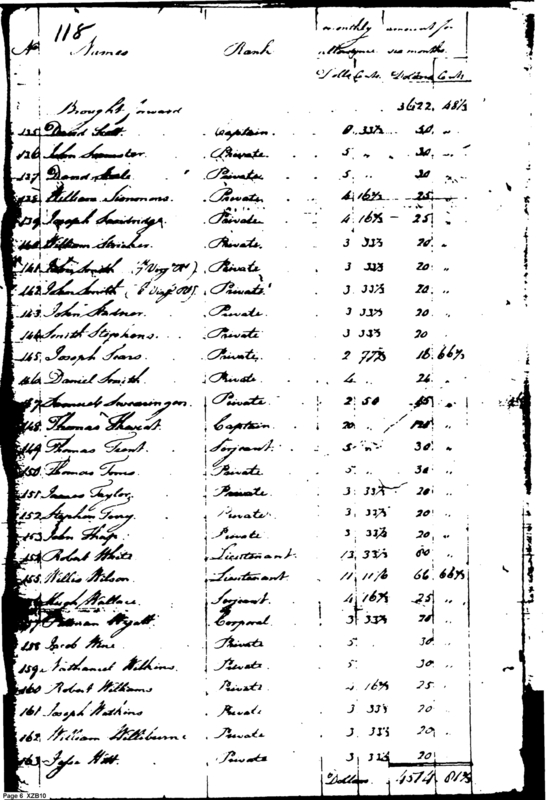 118
monthly amount for
No Names Rank allowance six months
Dolls Cts Dollars Cts
Brought forward 3622 48⅓
135 David Scott Captain 8 33⅓ 50 "
136 John Private 5 " 30 "
137 David Steele Private 5 " 30 "
138 William Simmons Private 4 16⅔ 25 "
139 Joseph Private 4 16⅔ 25 "
140 William Stricker Private 3 33⅓ 20 "
141 John Smith (7 Virg Rt) Private 3 33⅓ 20 "
142 John Smith (8 Virg Rt) Private 3 33⅓ 20 "
143 John Private 3 33⅓ 20 "
144 Smith Stephens Private 3 33⅓ 20
145 Joseph Sears Private 2 77⅔ 16 66⅔
146 Daniel Smith Private 4 " 24 "
147 Samuel Swearingen Private 2 50 15 "
148 Thomas Captain 20 " 120 "
149 Thomas Trent Serjeant 5 " 30 "
150 Thomas Private 5 " 30 "
151 James Taylor Private 3 33⅓ 20 "
152 Stephen Terry Private 3 33⅓ 20 "
153 John Tharp Private 3 33⅓ 20 "
154 Robert White Lieutenant 13 33⅓ 80 "
155 Willis Wilson Lieutenant 11 11⅙ 66 66⅔
156 Hugh Wallace Serjeant 4 16⅔ 25 "
157 Wyatt Corporal 3 33⅓ 20 "
158 Jacob Wine Private 5 30 "
159 Nathaniel Wilkins Private 5 30 "
160 Robert Williams Private 4 16⅔ 25 "
161 Joseph Watkins Private 3 33⅓ 20 "
162 William Private 3 33⅓ 20 "
163 Jesse Witt Private 3 33⅓ 20 "
Dollars 4574 81⅔
Page 6 XZB10